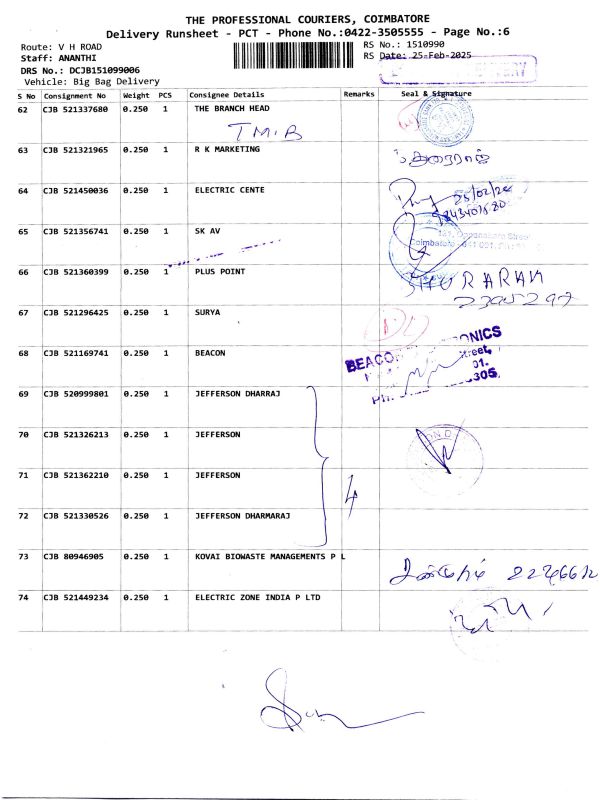 THE PROFESSIONAL COURIERS, COIMBATORE
Delivery Runsheet - PCT - Phone No.:0422-3505555 - Page No.:6
Route: V H ROAD
RS No.: 1510990
Staff: ANANTHI
RS Date: 25-Feb-2025
DRS No.: DCJB151099006
Vehicle: Big Bag Delivery
S No Consignment No Weight PCS Consignee Details Remarks Seal & Signature
62 CJB 521337680 0.250 1 THE BRANCH HEAD
TMB
63 CJB 521321965 0.250 1 R K MARKETING
64 CJB 521450036 0.250 1 ELECTRIC CENTE
65 CJB 521356741 0.250 1 SK AV
66 CJB 521360399 0.250 1 PLUS POINT
67 CJB 521296425 0.250 1 SURYA
68 CJB 521169741 0.250 1 BEACON
69 CJB 520999801 0.250 1 JEFFERSON DHARRAJ
70 CJB 521326213 0.250 1 JEFFERSON
71 CJB 521362210 0.250 1 JEFFERSON
4
72 CJB 521330526 0.250 1 JEFFERSON DHARMARAJ
73 CJB 80946905 0.250 1 KOVAI BIOWASTE MANAGEMENTS P L
74 CJB 521449234 0.250 1 ELECTRIC ZONE INDIA P LTD